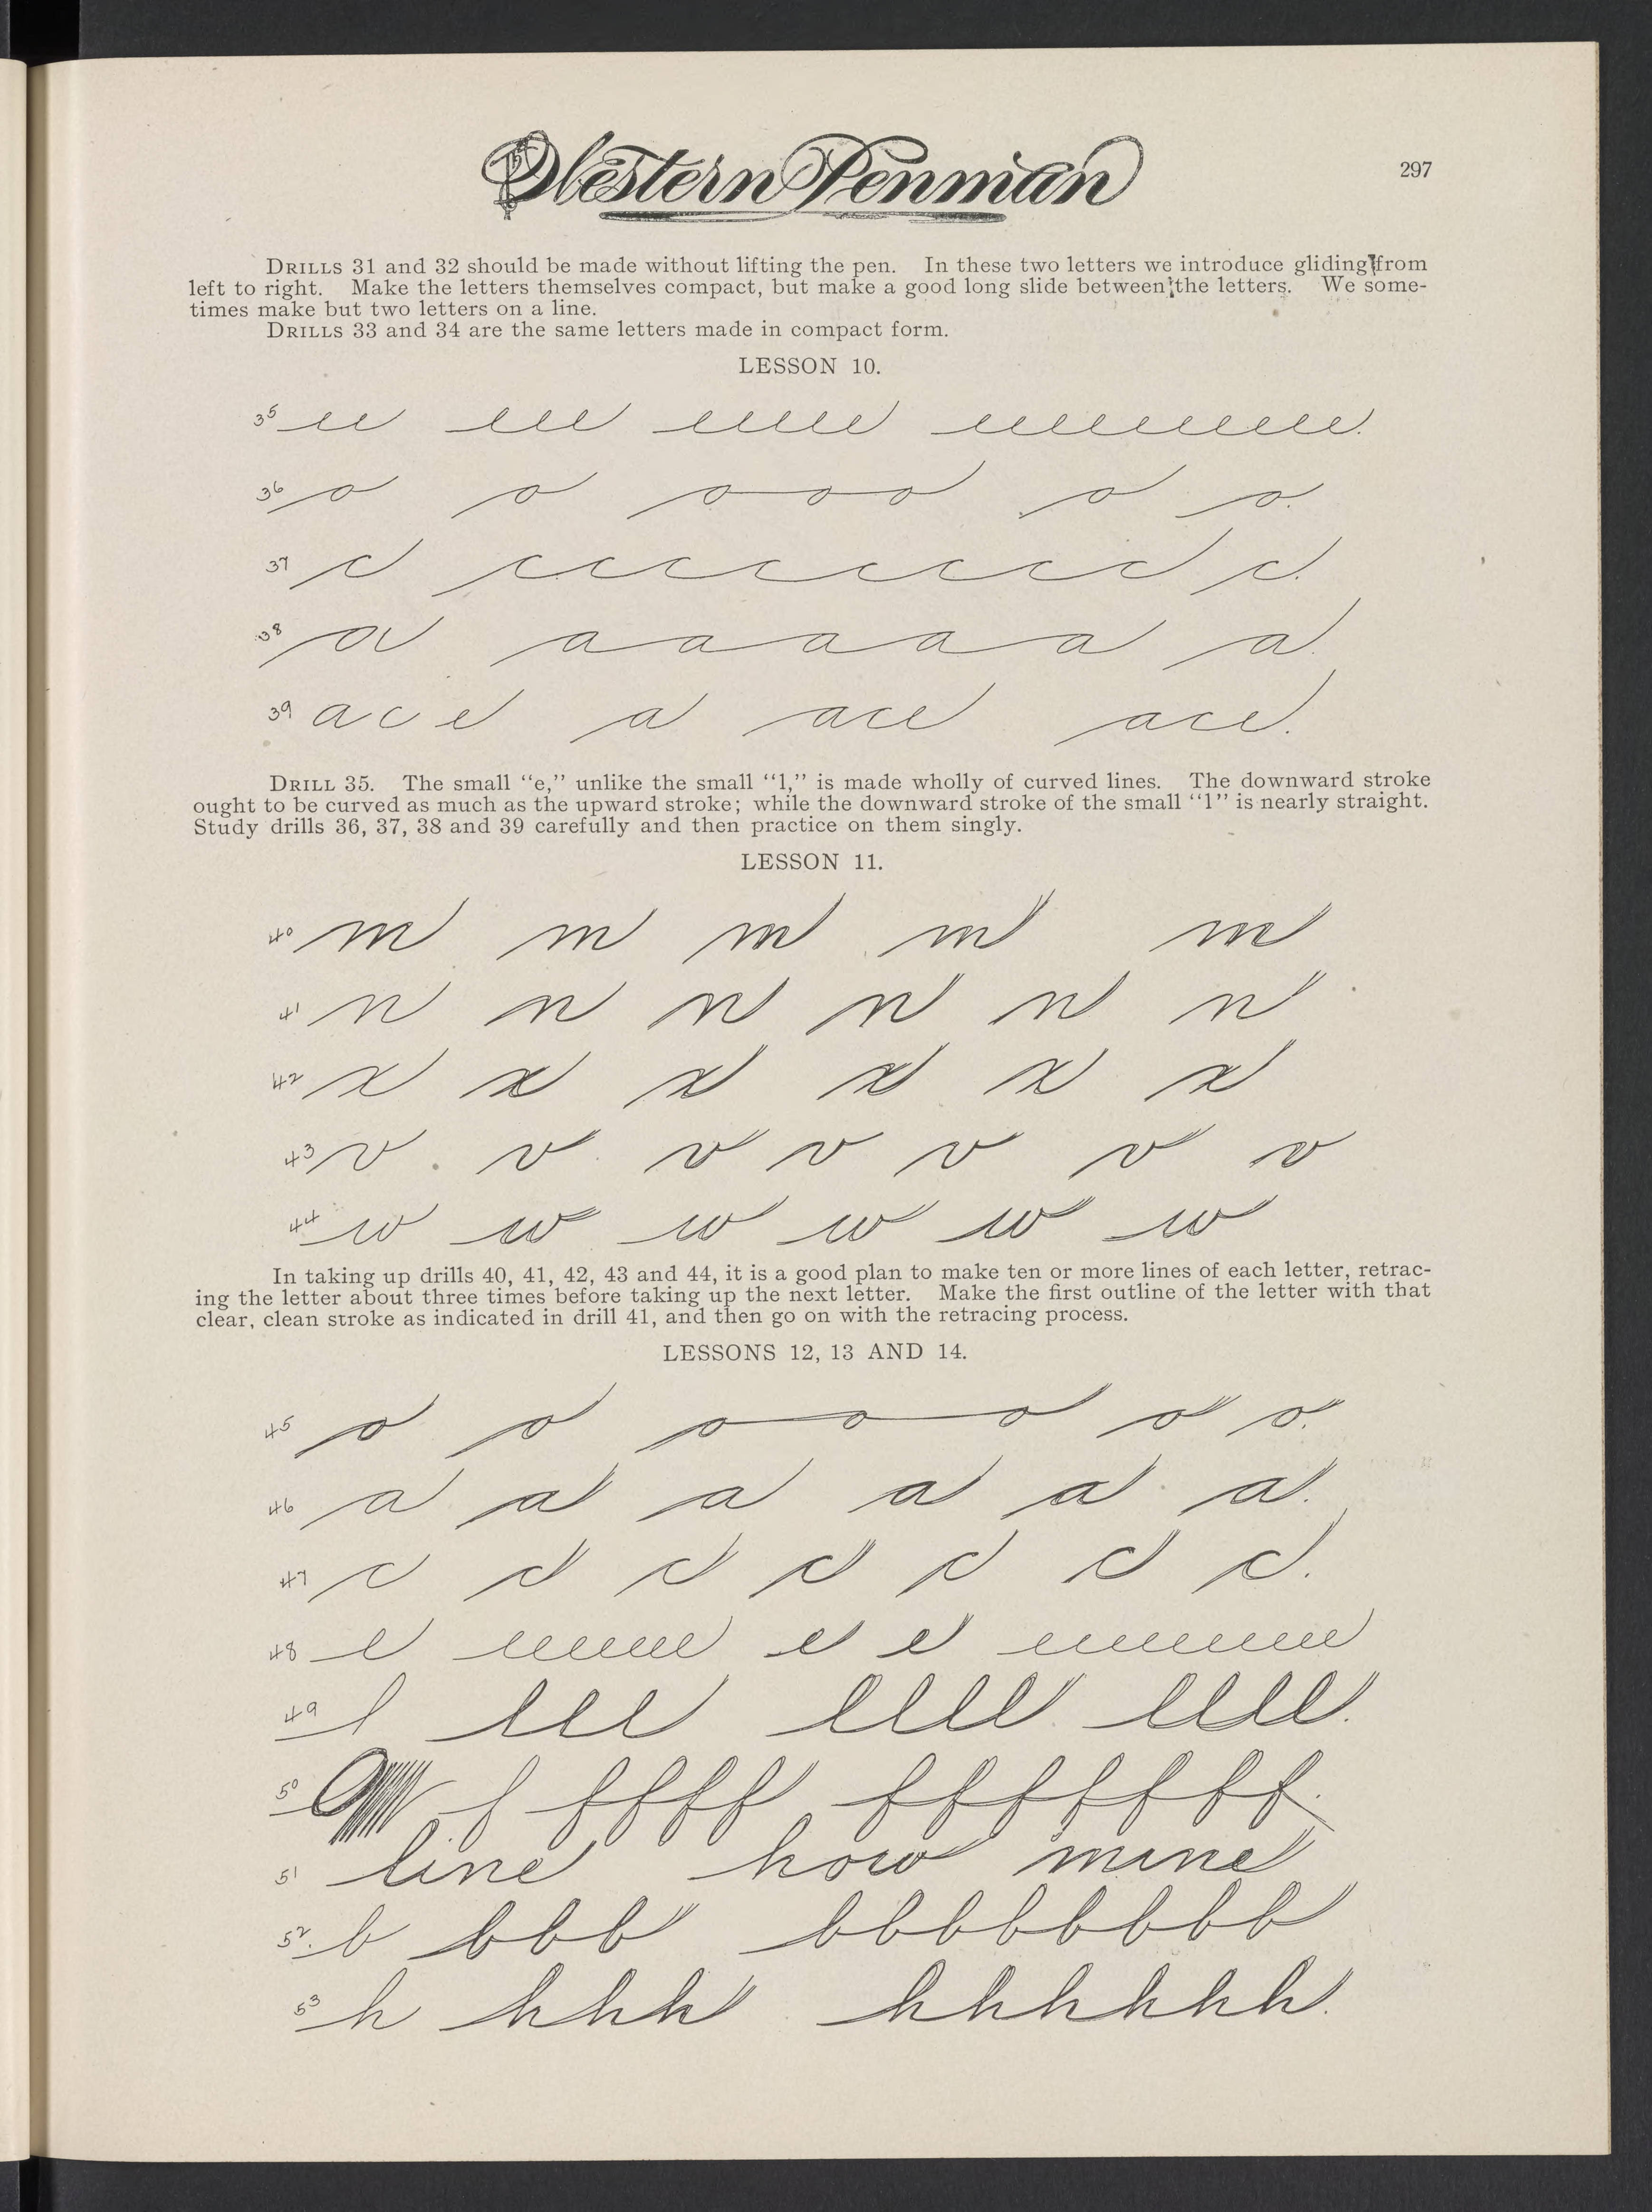 Western Penman
297
DRILLS 31 and 32 should be made without lifting the pen. In these two letters we introduce gliding from
left to right. Make the letters themselves compact, but make a good long slide between the letters. We some-
times make but two letters on a line.
DRILLS 33 and 34 are the same letters made in compact form.
LESSON 10.
35 ee eee eeee eeeeeeee.
36 o o o o o o o.
37 c c c c c c c c c c.
38 a a a a a a a.
39 a c e a ace ace.
DRILL 35. The small “e,” unlike the small “l,” is made wholly of curved lines. The downward stroke
ought to be curved as much as the upward stroke; while the downward stroke of the small “l” is nearly straight.
Study drills 36, 37, 38 and 39 carefully and then practice on them singly.
LESSON 11.
40 m m m m m
41 n n n n n n
42 x x x x x x
43 v v v v v v v
44 w w w w w w
In taking up drills 40, 41, 42, 43 and 44, it is a good plan to make ten or more lines of each letter, retrac-
ing the letter about three times before taking up the next letter. Make the first outline of the letter with that
clear, clean stroke as indicated in drill 41, and then go on with the retracing process.
LESSONS 12, 13 AND 14.
45 o o o o o o o.
46 a a a a a a.
47 c c c c c c c.
48 e eeeeee e e eeeeeeeee
49 l lll llll llll.
50 f ffff fffffff.
51 line how mine
52. b bbb bbbbbbbb
53 h hhh hhhhhh.